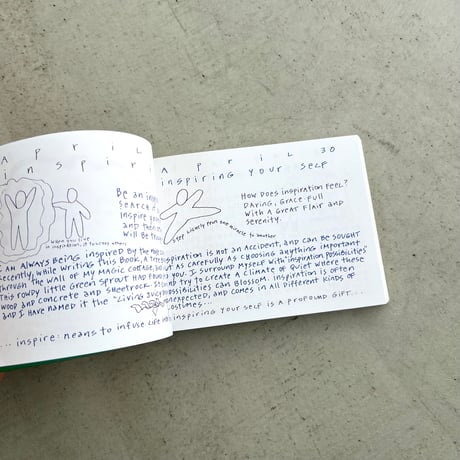 April
inspir
Be an in
search
inspire you
and then
will be
when you live
in inspiration, it touches others
I am always being inspired by the
recently, while writing this book, a t
through the wall of my magic cottage,
this rowdy little green sprout had
wood and concrete and sheetrock. I
and I have named it the "Living
... inspire: means to infuse life
April 30
inspiring your self
How does inspiration feel?
Daring, Grace-full
with a great flair and
serenity.
step silently from one miracle to another
inspiration is not an accident, and can be sought
out as carefully as choosing anything important
to you. I surround myself with "inspiration possibilities"
and try to create a climate of quiet where these
possibilities can blossom. inspiration is often
unexpected, and comes in all different kinds of
costumes...
inspiring your self is a profound gift...